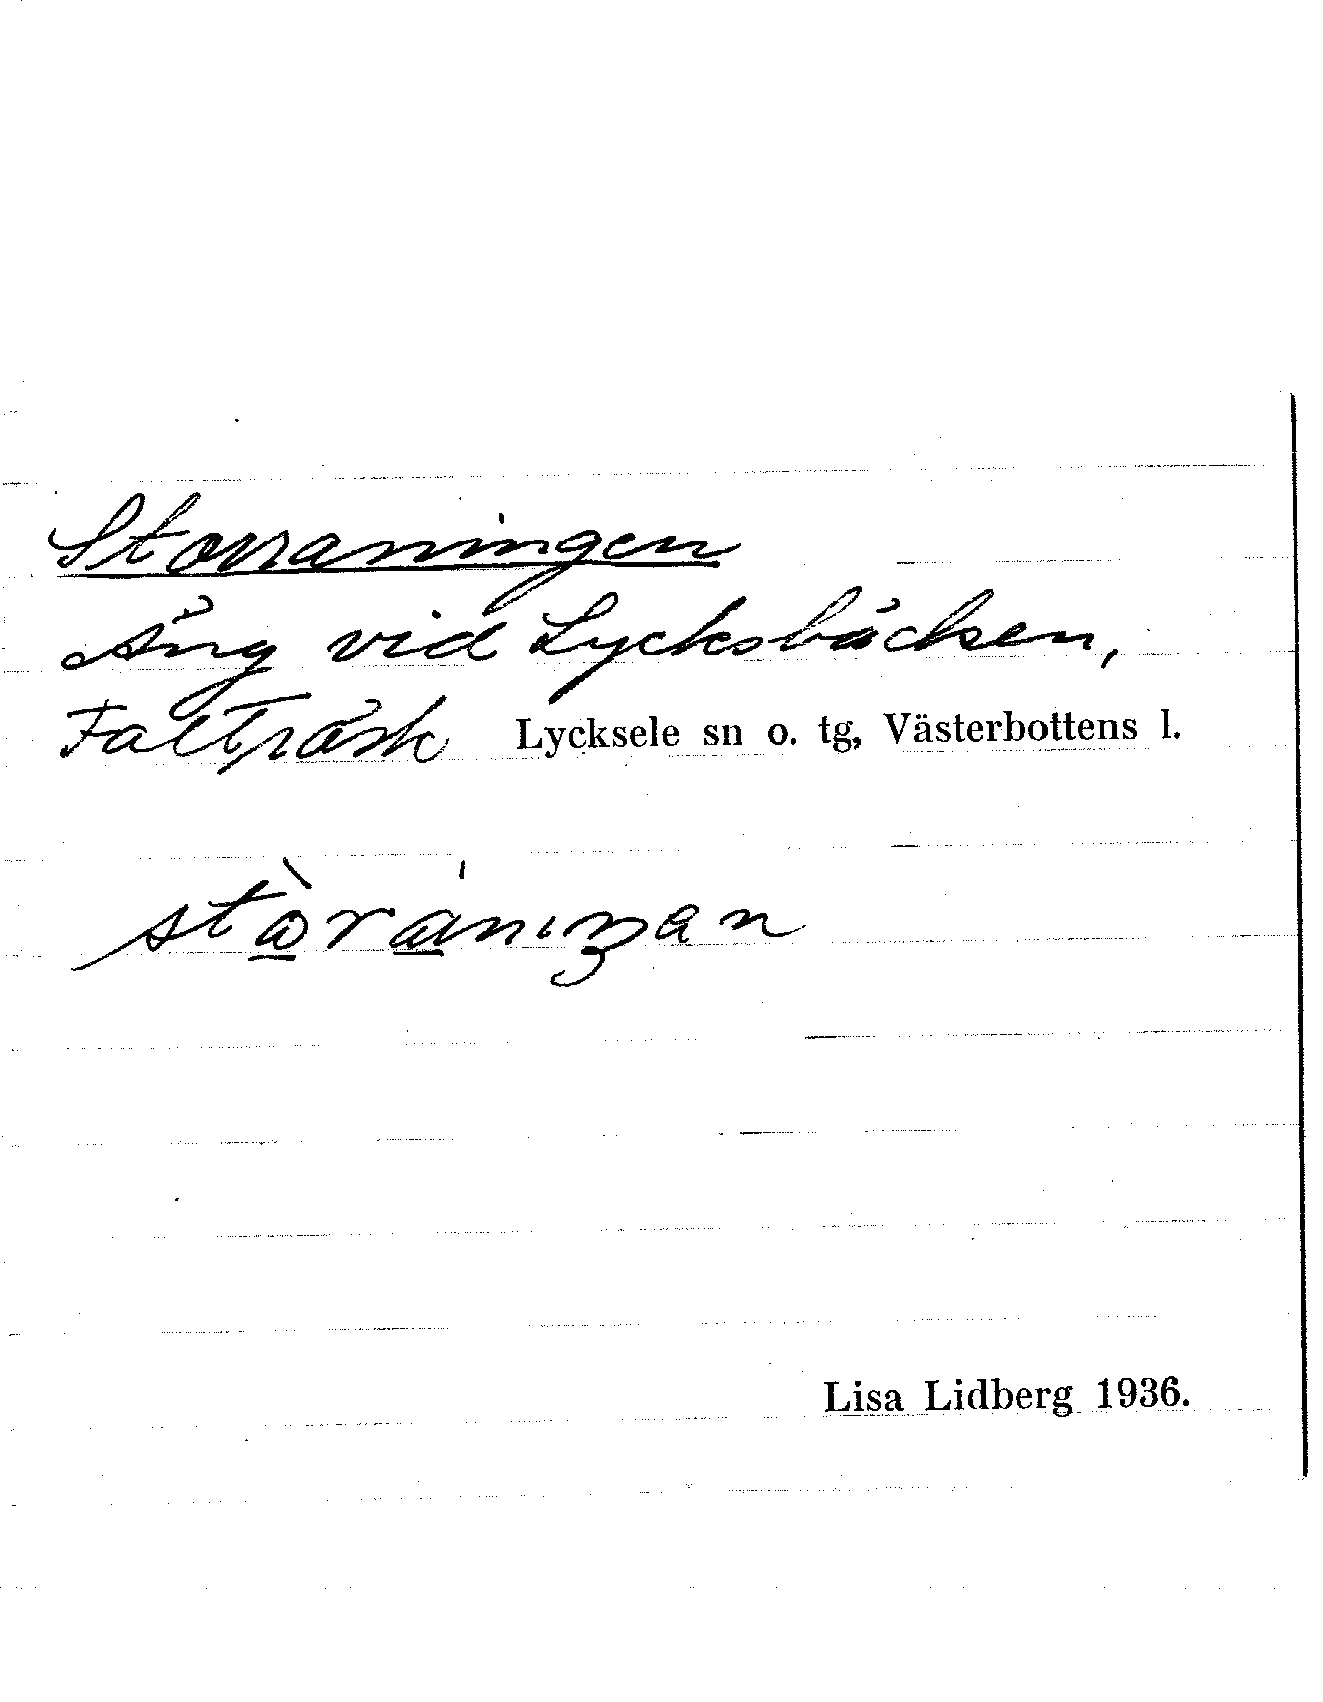 Storraningen
Äng vid Lycksbäcken,
Falträsk Lycksele sn o. tg, Västerbottens l.
Lisa Lidberg 1936.